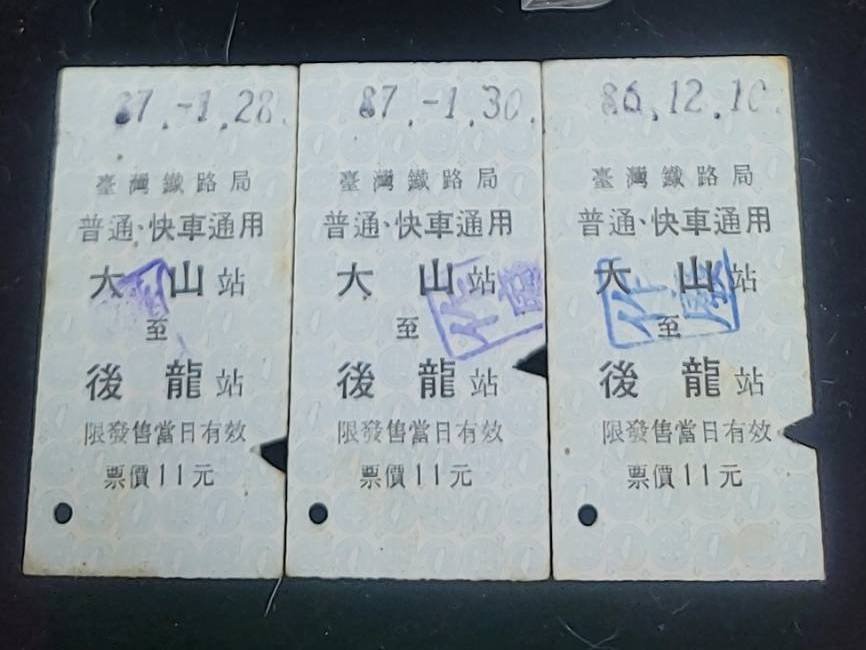 87.-1.28.
臺灣鐵路局
普通、快車通用
大山站
至
後龍站
限發售當日有效
票價11元
87.-1.30.
臺灣鐵路局
普通、快車通用
大山站
至
後龍站
限發售當日有效
票價11元
作廢
86.12.10.
臺灣鐵路局
普通、快車通用
大山站
至
後龍站
限發售當日有效
票價11元
作廢